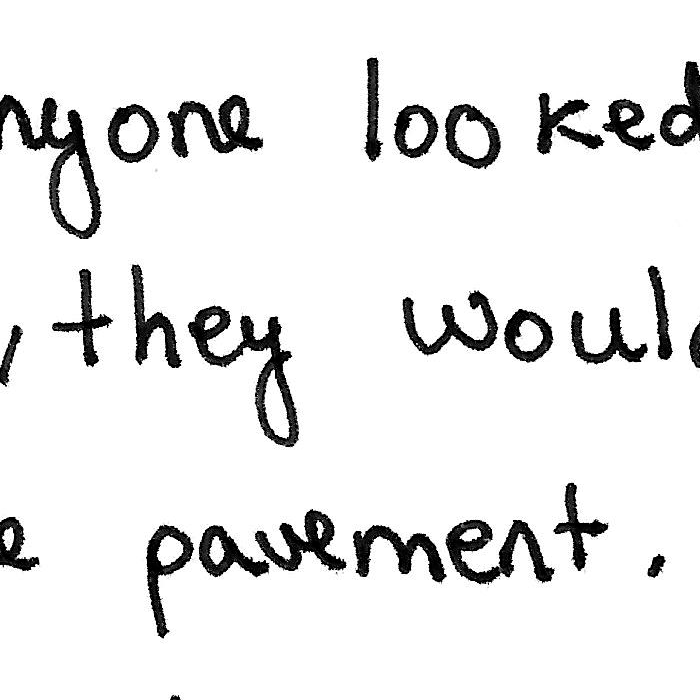 nyone looked
, they would
e pavement.